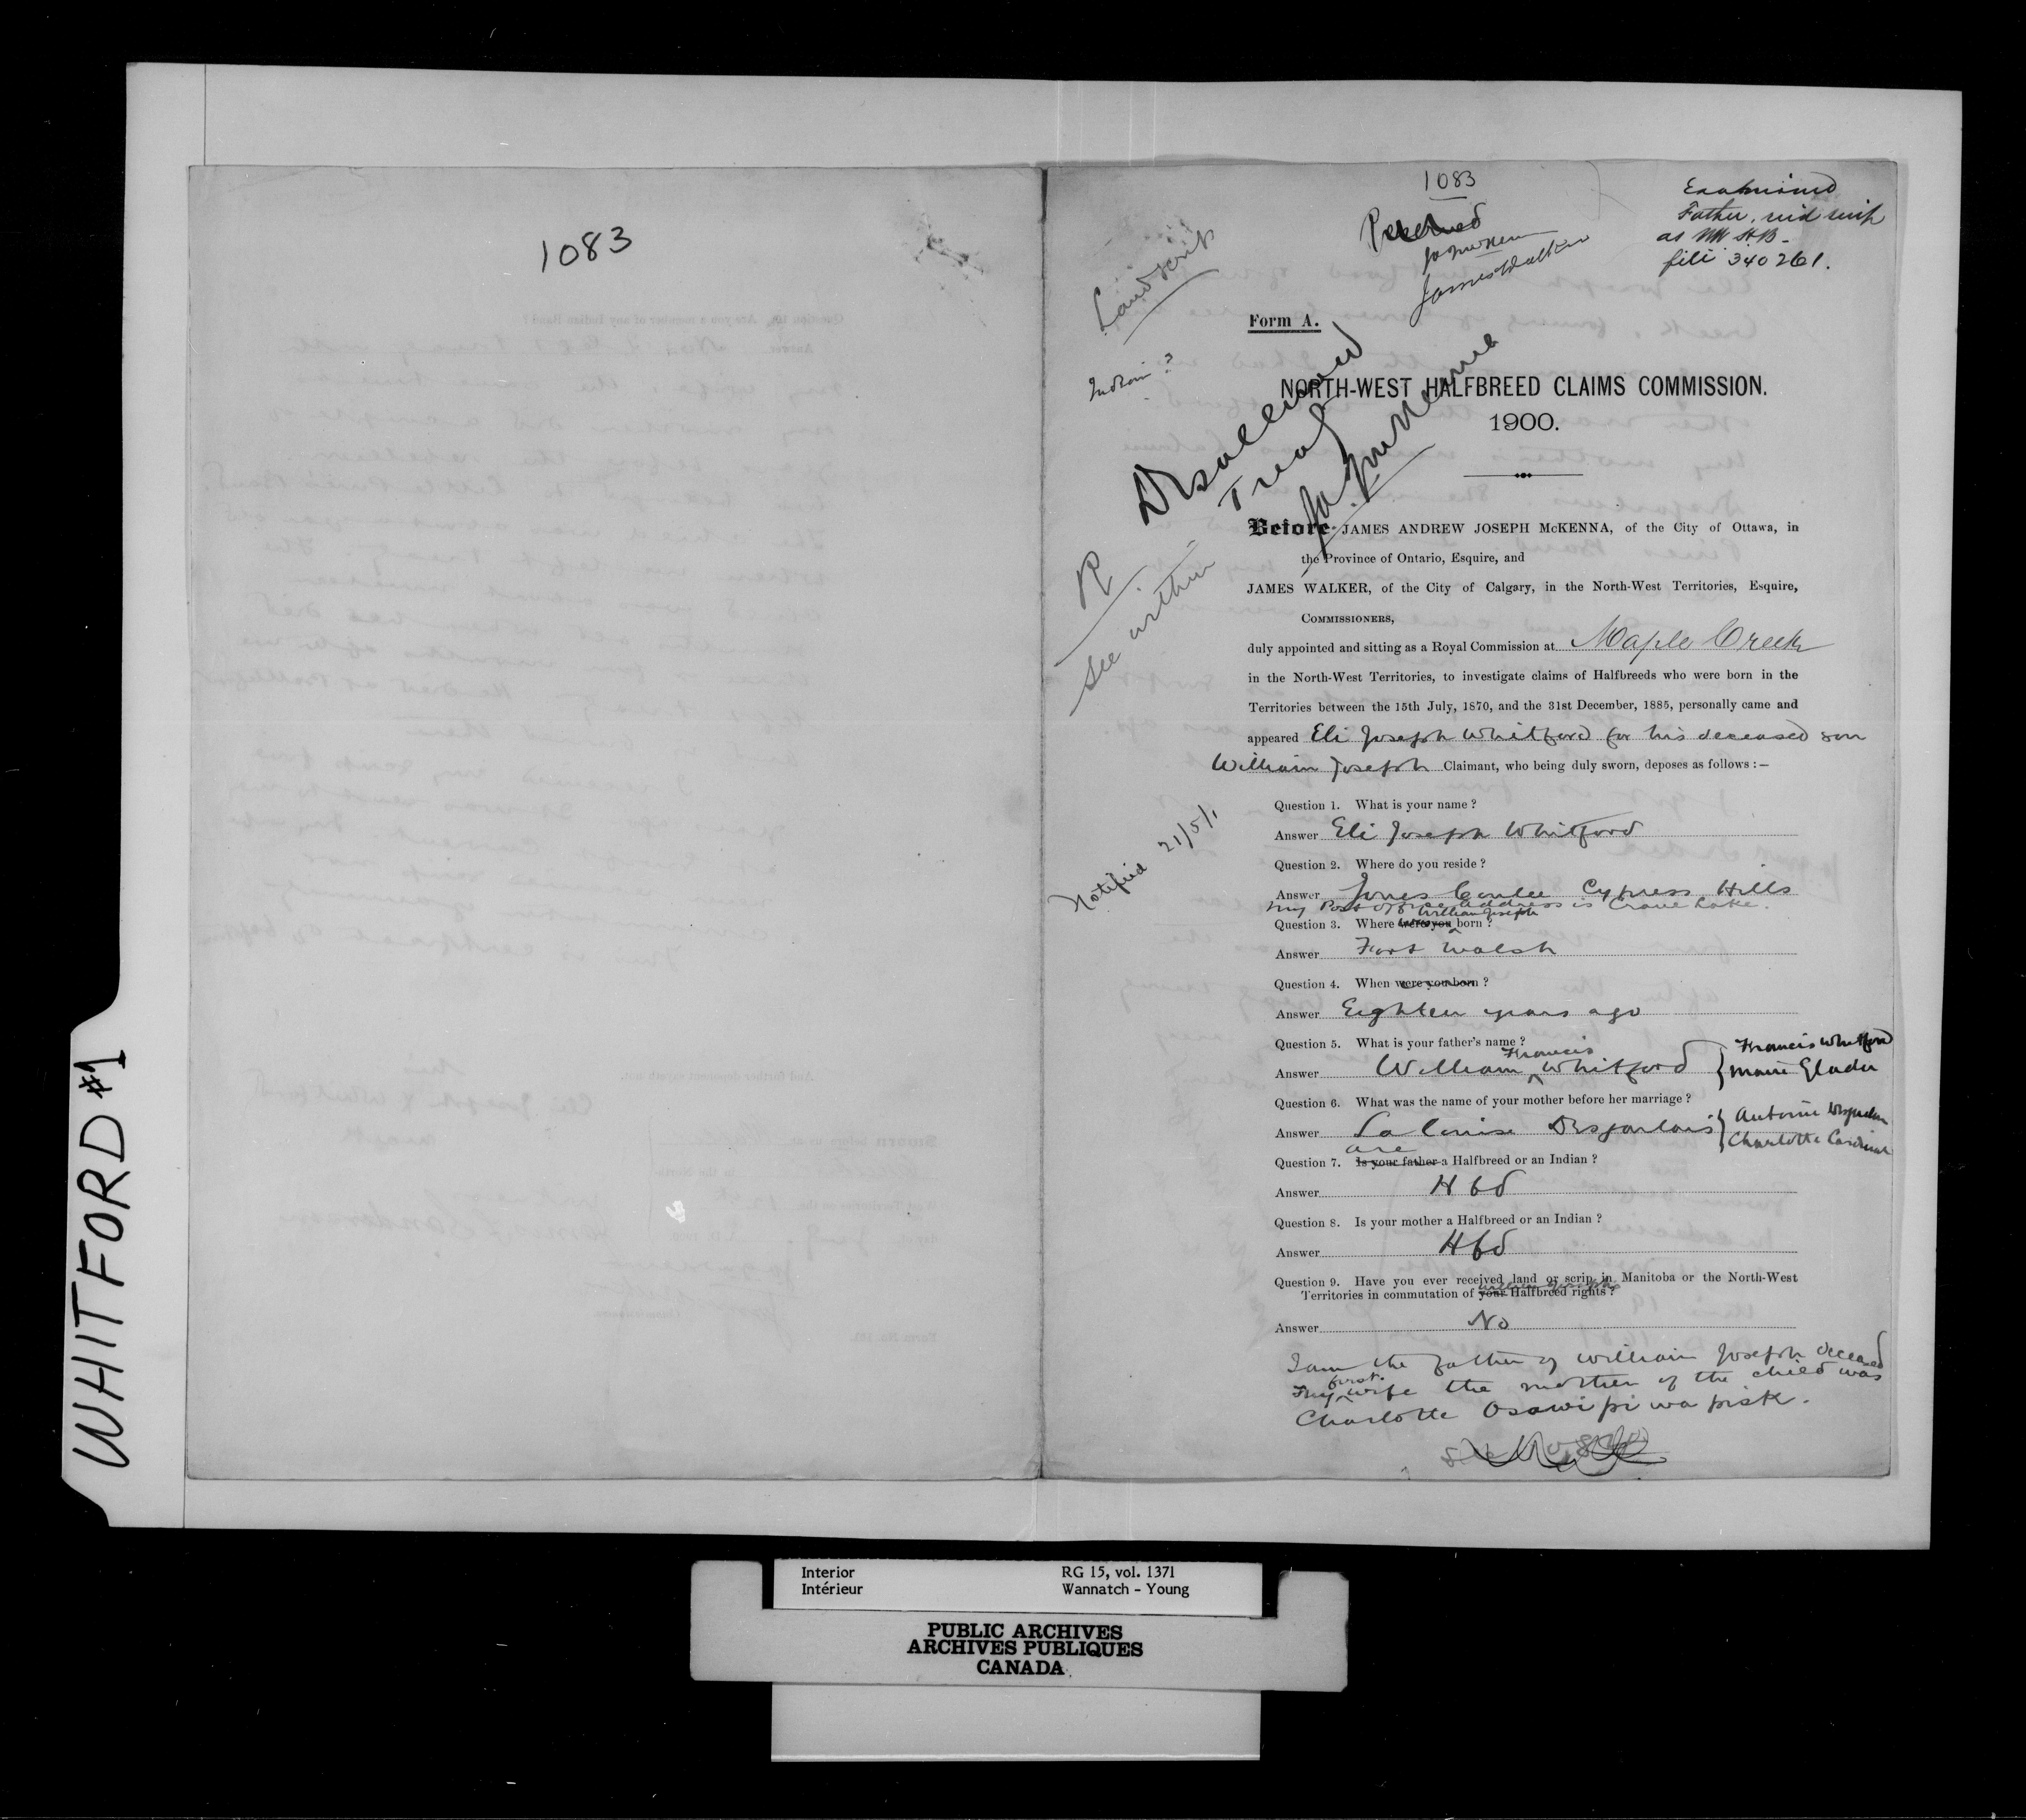 WHITFORD #1
1083
1083
Land scrip
Indian ?
James Walker
Examined
Father,
as NW HB -
file 340261.
Form A.
Disallowed
Treaty
JAJ McKenna
R
See within
NORTH-WEST HALFBREED CLAIMS COMMISSION.
1900.
Before JAMES ANDREW JOSEPH McKENNA, of the City of Ottawa, in
the Province of Ontario, Esquire, and
JAMES WALKER, of the City of Calgary, in the North-West Territories, Esquire,
COMMISSIONERS,
duly appointed and sitting as a Royal Commission at Maple Creek
in the North-West Territories, to investigate claims of Halfbreeds who were born in the
Territories between the 15th July, 1870, and the 31st December, 1885, personally came and
appeared Eli Joseph Whitford for his deceased son
William Joseph Claimant, who being duly sworn, deposes as follows :—
Notified 21/5/1
Question 1. What is your name ?
Answer Eli Joseph Whitford
Question 2. Where do you reside ?
Answer Jones Coulee Cypress Hills
my Post Office address is Crane Lake.
William Joseph
Question 3. Where were you born ?
Answer Fort Walsh
Question 4. When were you born ?
Answer Eighteen years ago
Question 5. What is your father's name ?
Francis
Answer William Whitford } Francis Whitford
Marie Gladu
Question 6. What was the name of your mother before her marriage ?
Answer La Louise Desjarlais } Antoine Desjarlais
Charlotte Cardinal
are
Question 7. Is your father a Halfbreed or an Indian ?
Answer Hbd
Question 8. Is your mother a Halfbreed or an Indian ?
Answer Hbd
Question 9. Have you ever received land or scrip in Manitoba or the North-West
William Joseph's
Territories in commutation of your Halfbreed rights ?
Answer No
I am the father of William Joseph deceased
first
My wife the mother of the child was
Charlotte Osawipiwapisk.
Interior
Intérieur
RG 15, vol. 1371
Wannatch - Young
PUBLIC ARCHIVES
ARCHIVES PUBLIQUES
CANADA